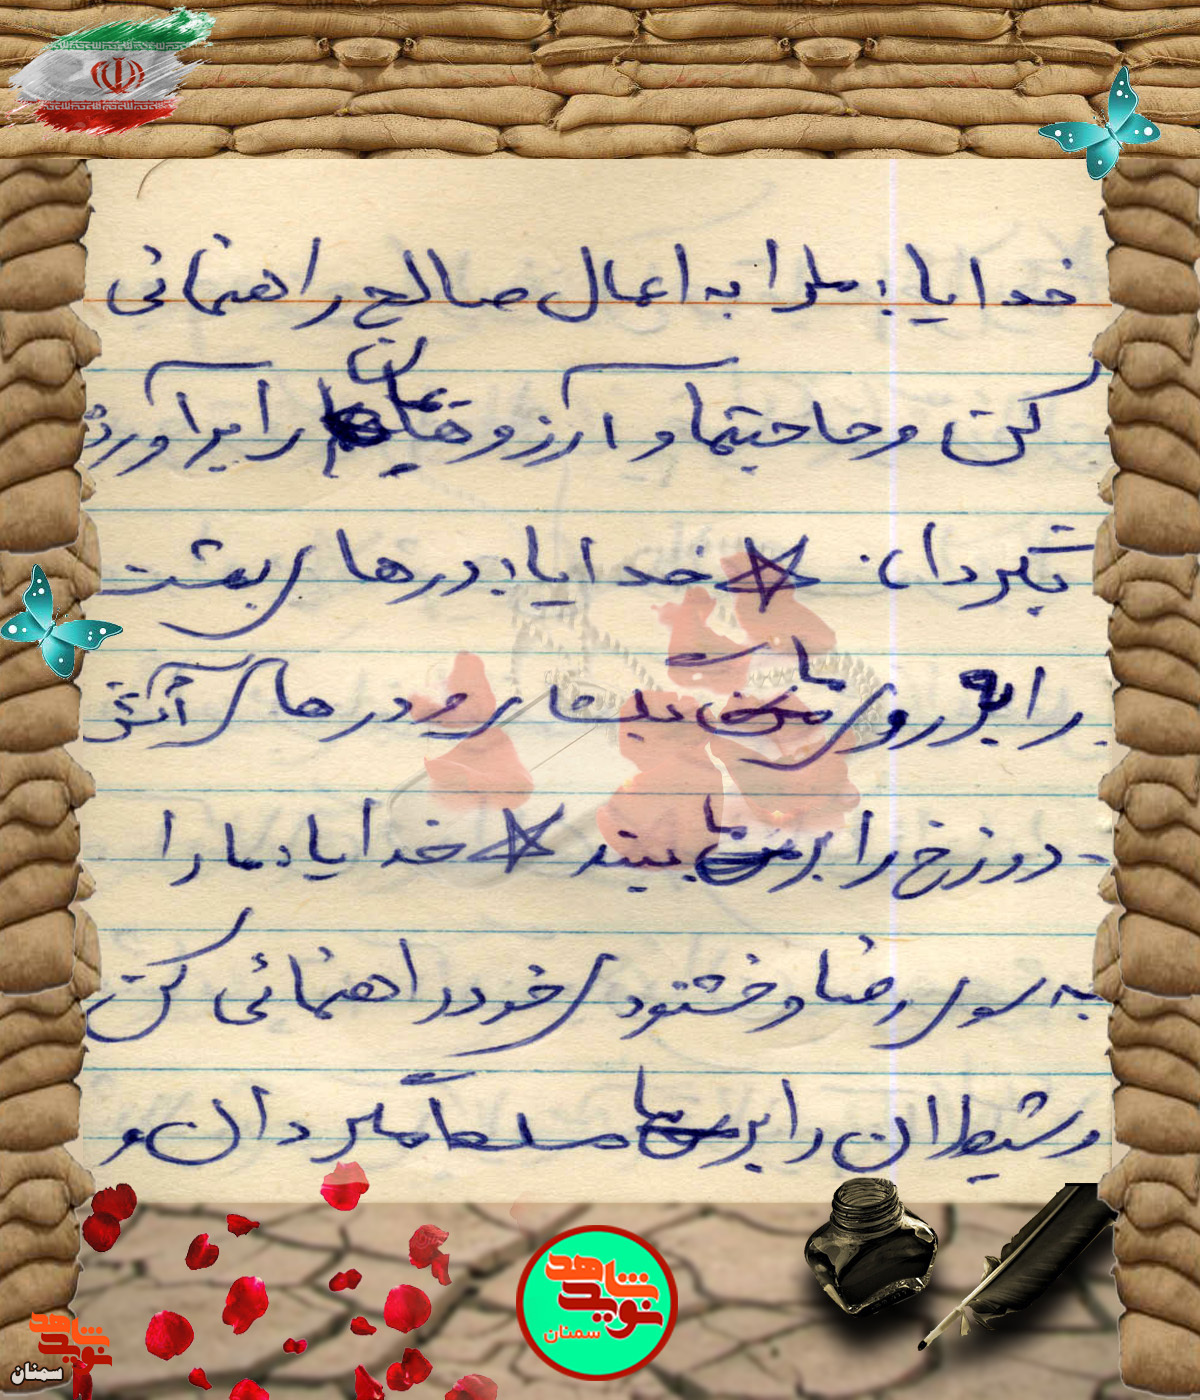 خدایا: ما را به اعمال صالح راهنمائی
کن و حاجتها و آرزوهایمان را برآورده
بگردان. خدایا: درهای بهشت
را بر روی ما بگشای و درهای آتش
دوزخ را بر ما ببند خدایا: ما را
به سوی رضا و خشنودی خود راهنمائی کن
و شیطان را بر ما مسلط مگردان و
نوید شاهد
سمنان
نوید شاهد
سمنان